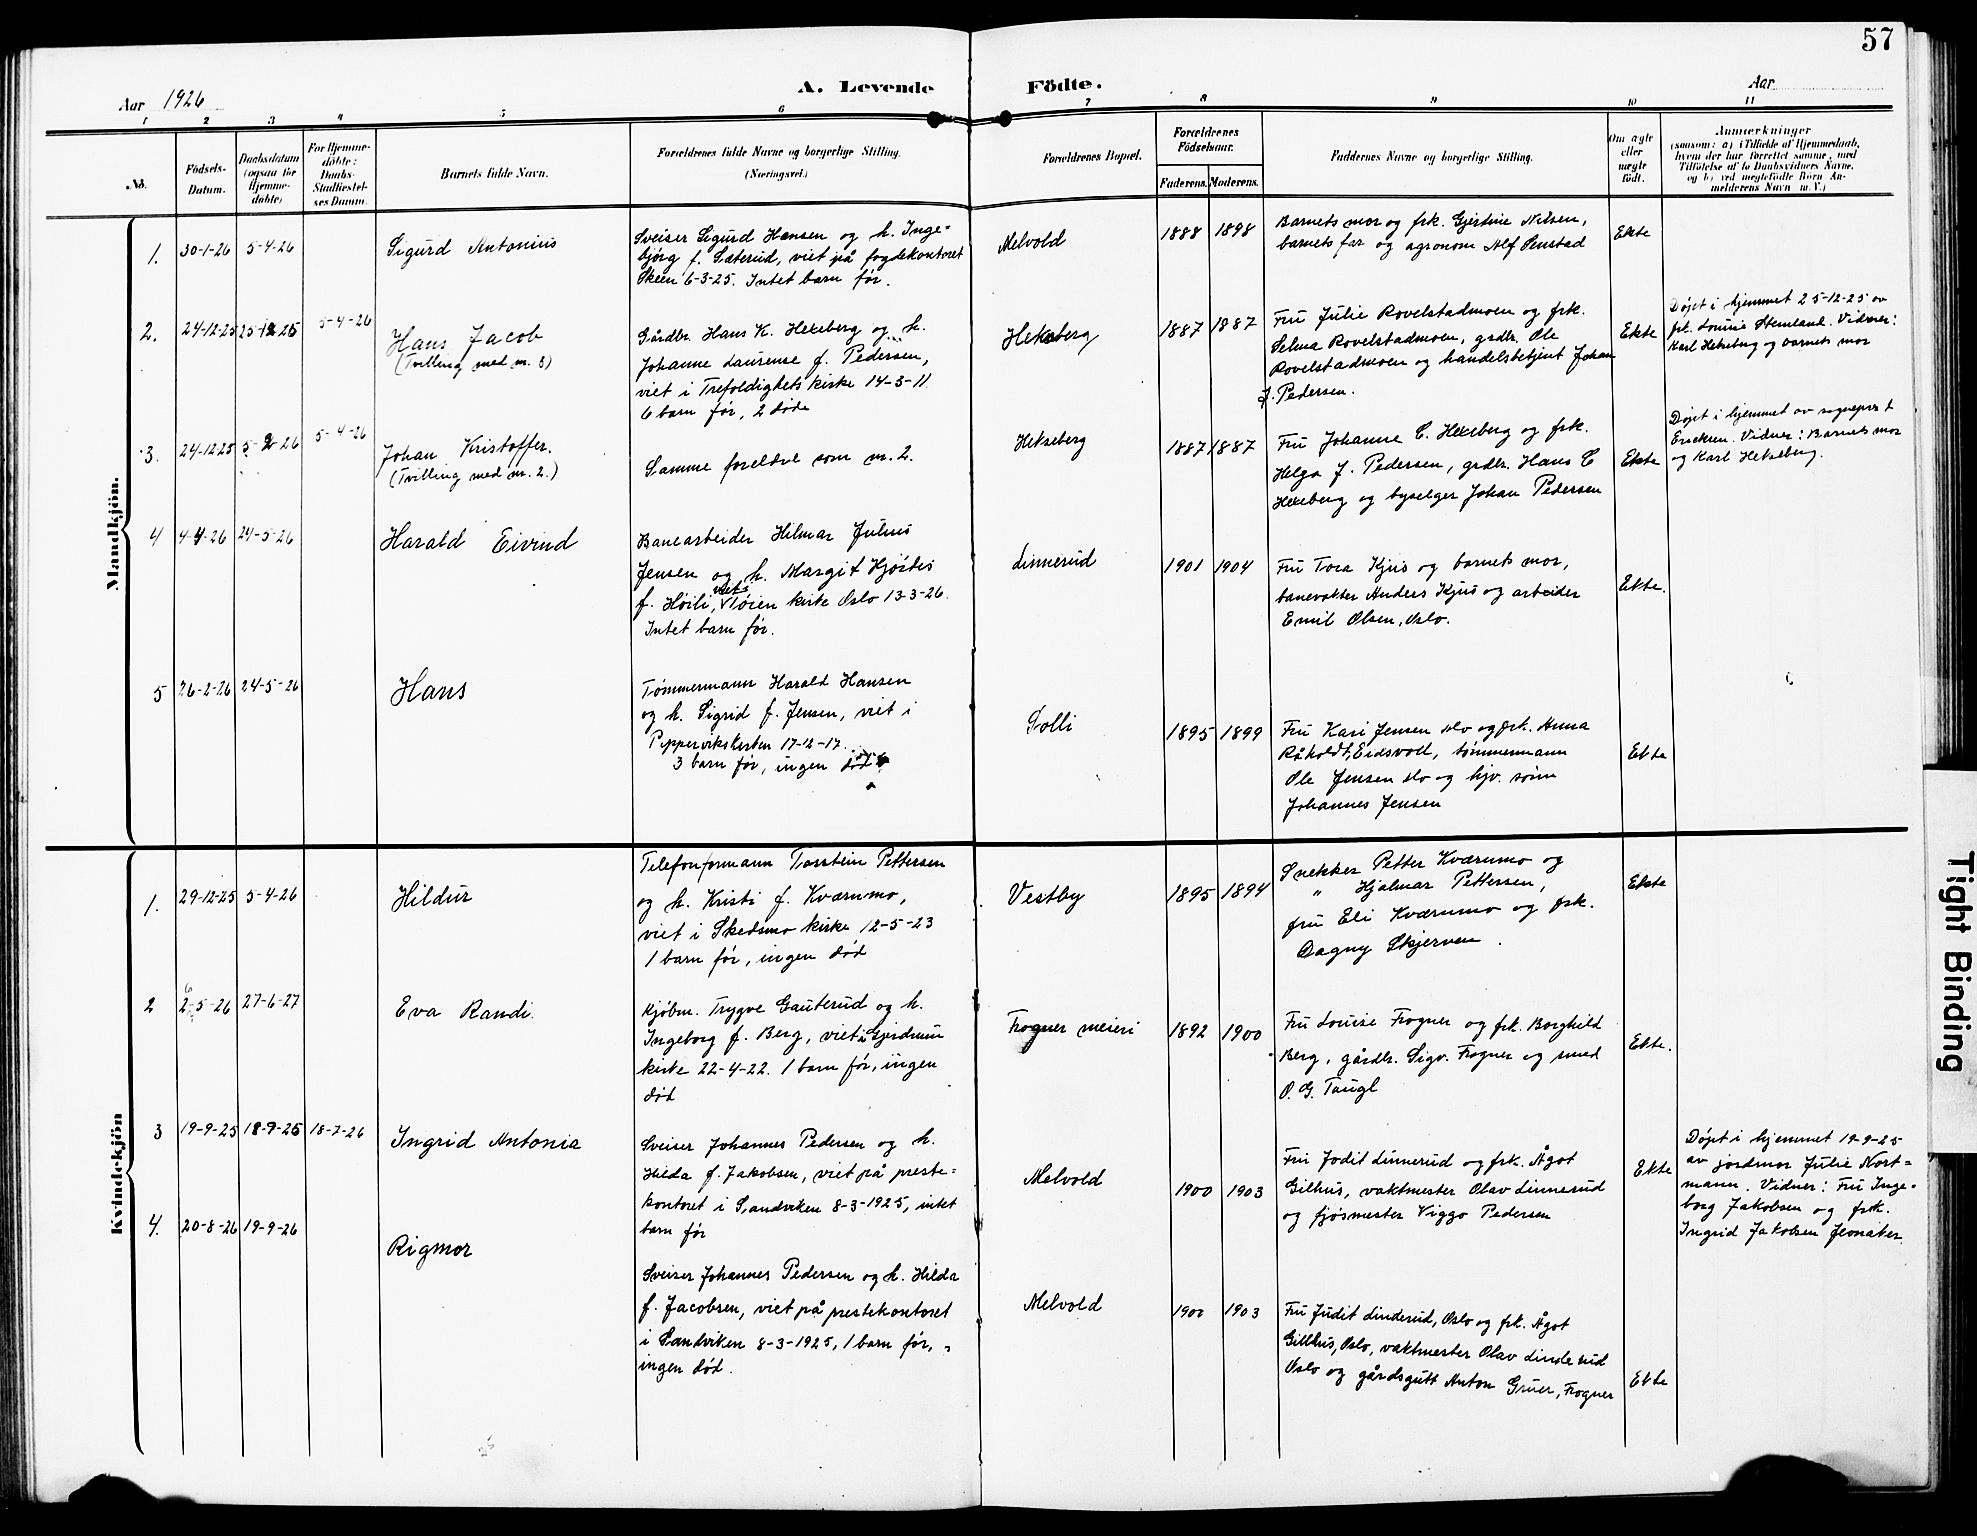 57
A. Levende Födte.
Aar 1926
Aar
1 2 3 4 5 6 7 8 9 10 11
No.
Födsels-
Datum.
Daabsdatum
(ogsaa for
Hjemme-
döbte)
For Hjemme-
döbte:
Daabs-
Stadfæstel-
ses Datum.
Barnets fulde Navn.
Forældrenes fulde Navne og borgerlige Stilling.
(Næringsvei.)
Forældrenes Bopæl.
Forældrenes
Födselsaar.
Faderens. Moderens.
Faddernes Navne og borgerlige Stilling.
Om ægte
eller
uægte
födt.
Anmærkninger
(saasom: a) i Tilfælde af Hjemmedaab,
hvem der har forrettet samme, med
Tilföielse af to Daabsvidners Navne,
og b) ved uægtefödte Börn An-
melderens Navn m.V.)
Mandkjön.
1. 30-1-26 5-4-26
Sigurd Antonius
Sveiser Sigurd Hansen og h. Inge-
björg f. Sæterud, viet på fogdekontoret
Skien 6-3-25. Intet barn før.
Melvold
1888 1898
Barnets mor og frk. Gjertine Nilsen,
barnets far og agronom Alf Senstad
Ekte
2. 24-12-25 25-12-25 5-4-26
Hans Jacob
(Tvilling med nr. 3)
Gårdbr. Hans K. Hexeberg og h.
Johanne Laurense f. Pedersen,
viet i Trefoldighets kirke 14-3-11
6 barn før, 2 døde
Hekseberg
1887 1887
Fru Julie Rovelstadmoen og frk.
Selma Rovelstadmoen, grdbr. Ole
Rovelstadmoen og handelsbetjent Johan
J. Pedersen.
Ekte
Døpt i hjemmet 25-12-25 av
frk. Louise Stemland. Vidner:
Karl Hekseberg og barnets mor
3. 24-12-25 5-2-26 5-4-26
Johan Kristoffer.
(Tvilling med nr. 2.)
Samme foreldre som nr. 2.
Hekseberg
1887 1887
Fru Johanne C. Hexeberg og frk.
Helga J. Pedersen, grdbr. Hans C
Hexeberg og byselger Johan Pedersen
Ekte
Døpt i hjemmet av sogneprest
Ericksen. Vidner: Barnets mor
og Karl Hekseberg.
4 4-4-26 24-5-26
Harald Eivind
Banearbeider Hilmar Julius
Jensen og h. Margit Hjørdis
f. Høili, viet i Tøien kirke Oslo 13-3-26.
Intet barn før.
Linnerud
1901 1904
Fru Tora Kjus og barnets mor,
banevakter Anders Kjus og arbeider
Emil Olsen, Oslo.
Ekte.
5 26-2-26 24-5-26
Hans
Tømmermann Harald Hansen
og h. Sigrid f. Jensen, viet i
Piperviksk kirken 17-12-17.
3 barn før, ingen død
Tolli
1895 1899
Fru Kari Jensen Oslo og frk. Anna
Råholdt, Eidsvoll, tømmermann
Ole Jensen Oslo og hjv. sønn
Johannes Jensen
Ekte
Kvindekjön
1. 29-12-25 5-4-26
Hildur
Telefonformann Torstein Pettersen
og h. Kristi f. Kværnmo,
viet i Skedsmo kirke 12-5-23
1 barn før, ingen død
Vestby
1895 1894
Snekker Petter Kværnmo og
" Hjalmar Pettersen,
fru Eli Kværnmo og frk.
Dagny Skjerven.
Ekte
2 26-5-26 27-6-27
Eva Randi.
Kjøbm. Trygve Gauterud og h.
Ingeborg f. Berg, viet i Gjerdrum
kirke 22-4-22. 1 barn før, ingen
død
Frogner meieri
1892 1900
Fru Louise Frogner og frk. Borghild
Berg, gårdbr. Sigv. Frogner og smed
O. G. Taugl
Ekte.
3 19-9-25 18-9-25 18-7-26
Ingrid Antonia
Sveiser Johannes Pedersen og h.
Hilda f. Jakobsen, viet på preste-
kontoret i Sandviken 8-3-1925, intet
barn før
Melvold
1900 1903
Fru Jodit Linnerud og frk. Ågot
Gilhus, vaktmester Olav Linnerud
og fjøsmester Viggo Pedersen
Ekte
Døpt i hjemmet 19-9-25
av jordmor Julie Nort-
mann. Vidner: Fru Inge-
borg Jakobsen og frk.
Ingrid Jakobsen
4. 20-8-26 19-9-26
Rigmor
Sveiser Johannes Pedersen og h. Hilda
f. Jacobsen, viet på prestekontoret
i Sandviken 8-3-1925, 1 barn før,
ingen død.
Melvold
1900 1903
Fru Judit Linderud, Oslo og frk. Ågot
Gillhus, Oslo, vaktmester Olav Linderud
Oslo og gårdsgutt Anton Gruer, Frogner
Ekte
25
Tight Binding